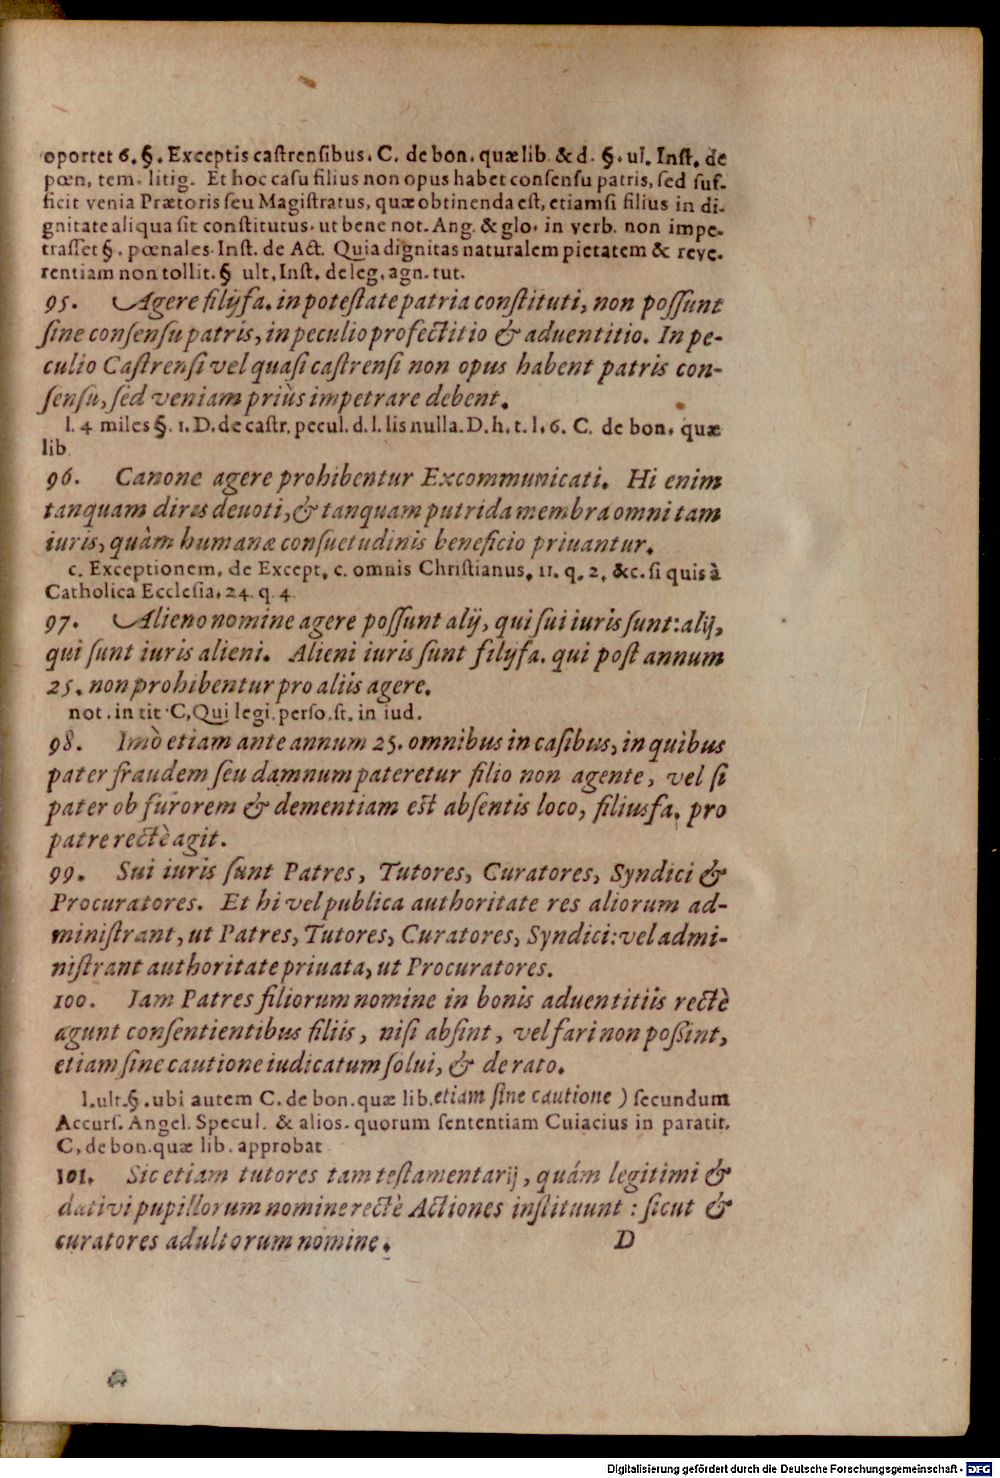 oportet 6. §. Exceptis caſtrenſibus. C. de bon. quæ lib. & d. §. ul. Inſt. de
pœn, tem. litig. Et hoc caſu filius non opus habet conſenſu patris, ſed ſuf-
ficit venia Prætoris ſeu Magiſtratus, quæ obtinenda eſt, etiamſi filius in di-
gnitate aliqua ſit conſtitutus. ut bene not. Ang. & glo. in verb. non impe-
traſſet §. pœnales. Inſt. de Act. Quia dignitas naturalem pietatem & reve-
rentiam non tollit. § ult. Inſt. de leg. agn. tut.
95. Agere filijfa. in poteſtate patria conſtituti, non poſſunt
ſine conſenſu patris, in peculio profectitio & aduentitio. In pe-
culio Caſtrenſi vel quaſi caſtrenſi non opus habent patris con-
ſenſu, ſed veniam priùs impetrare debent.
l. 4 miles §. 1. D. de caſtr. pecul. d. l. lis nulla. D. h. t. l. 6. C. de bon. quæ
lib.
96. Canone agere prohibentur Excommunicati. Hi enim
tanquam diris deuoti, & tanquam putrida membra omni tam
iuris, quàm humanæ conſuetudinis beneficio priuantur.
c. Exceptionem, de Except. c. omnis Chriſtianus. 11. q. 2. &c. ſi quis à
Catholica Eccleſia. 24. q. 4.
97. Alieno nomine agere poſſunt alij, qui ſui iuris ſunt: alij,
qui ſunt iuris alieni. Alieni iuris ſunt filijfa. qui poſt annum
25. non prohibentur pro aliis agere.
not. in tit. C, Qui legi. perſo. ſt. in iud.
98. Imò etiam ante annum 25. omnibus in caſibus, in quibus
pater fraudem ſeu damnum pateretur filio non agente, vel ſi
pater ob furorem & dementiam eſt abſentis loco, filiusfa. pro
patre rectè agit.
99. Sui iuris ſunt Patres, Tutores, Curatores, Syndici &
Procuratores. Et hi vel publica authoritate res aliorum ad-
miniſtrant, ut Patres, Tutores, Curatores, Syndici: vel admi-
niſtrant authoritate priuata, ut Procuratores.
100. Iam Patres filiorum nomine in bonis aduentitiis rectè
agunt conſentientibus filiis, niſi abſint, vel fari non poßint,
etiam ſine cautione iudicatum ſolui, & de rato.
l. ult. §. ubi autem C. de bon. quæ lib. etiam ſine cautione ) ſecundum
Accurſ. Angel. Specul. & alios. quorum ſententiam Cuiacius in paratit.
C, de bon. quæ lib. approbat
101. Sic etiam tutores tam teſtamentarij, quám legitimi &
dativi pupillorum nomine rectè Actiones inſtituunt : ſicut &
curatores adultorum nomine. D
Digitalisierung gefördert durch die Deutsche Forschungsgemeinschaft - DFG